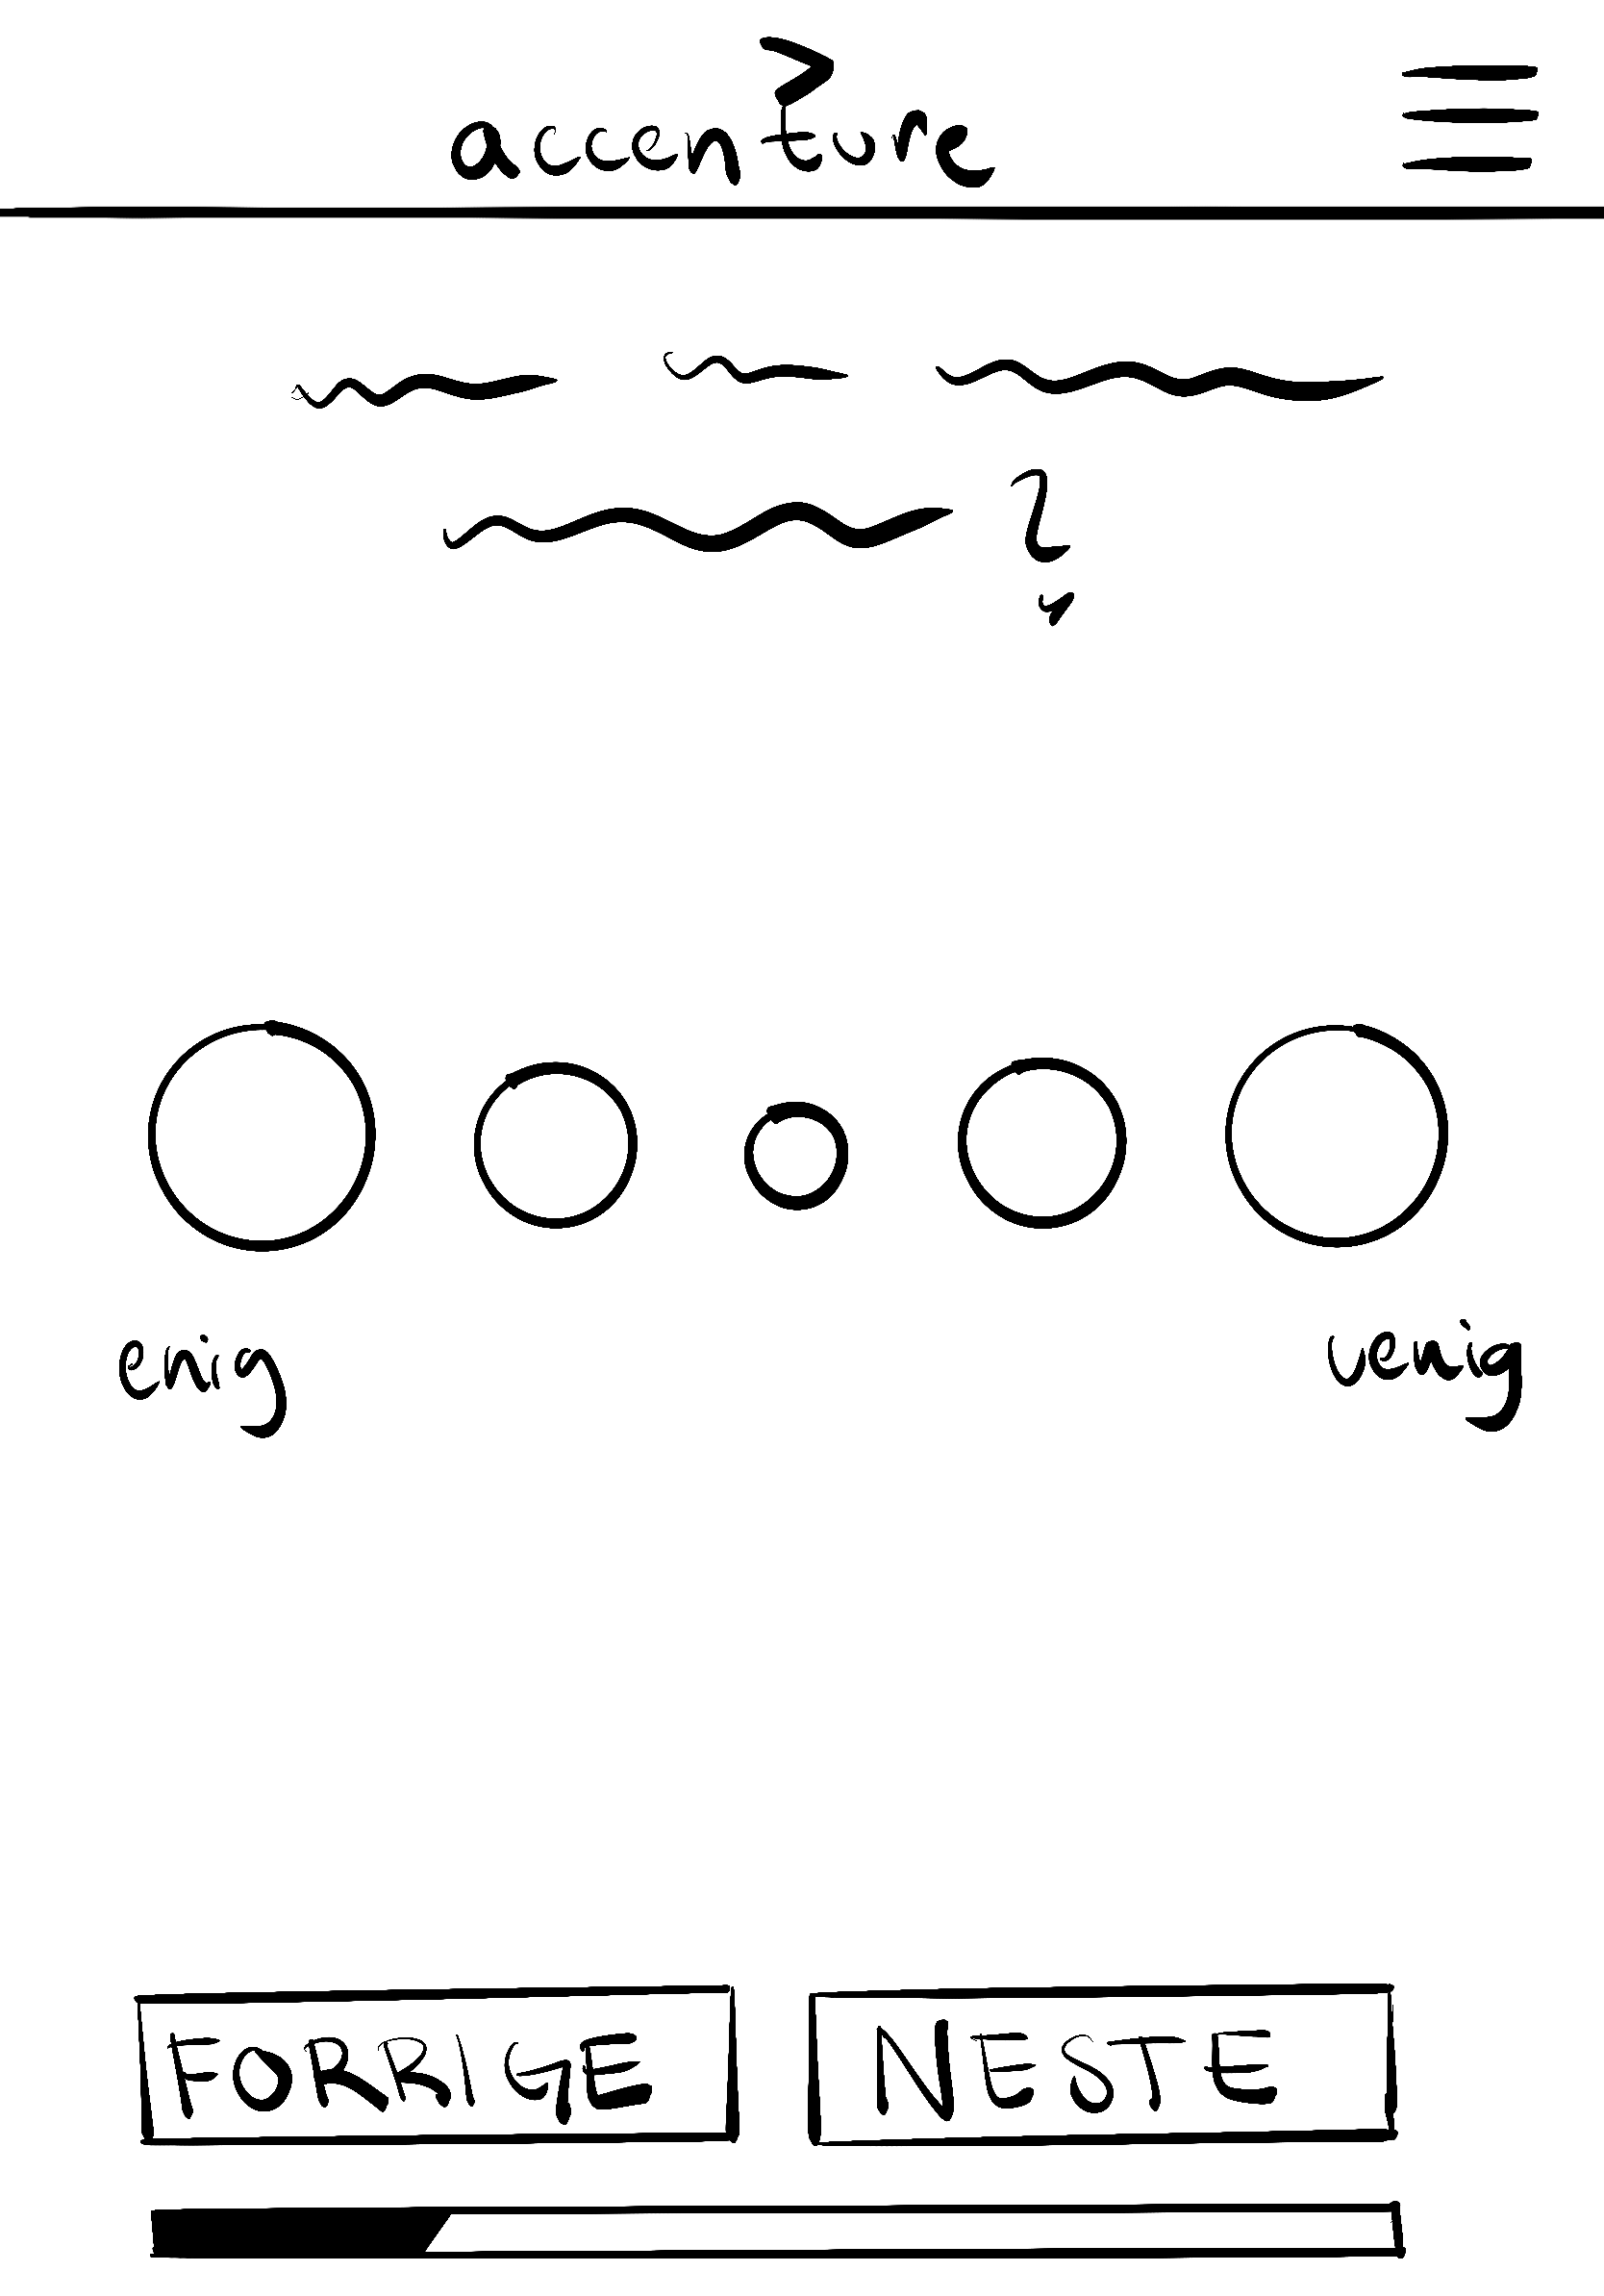 accenture
?
enig
uenig
FORRIGE
NESTE